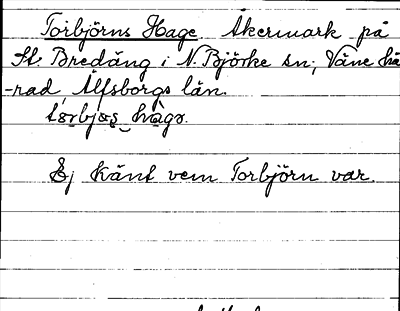 Torbjörns Hage. Åkermark på
St. Bredäng i N. Björke sn, Väne hä
-rad, Älfsborgs län.
Ej känt vem Torbjörn var.